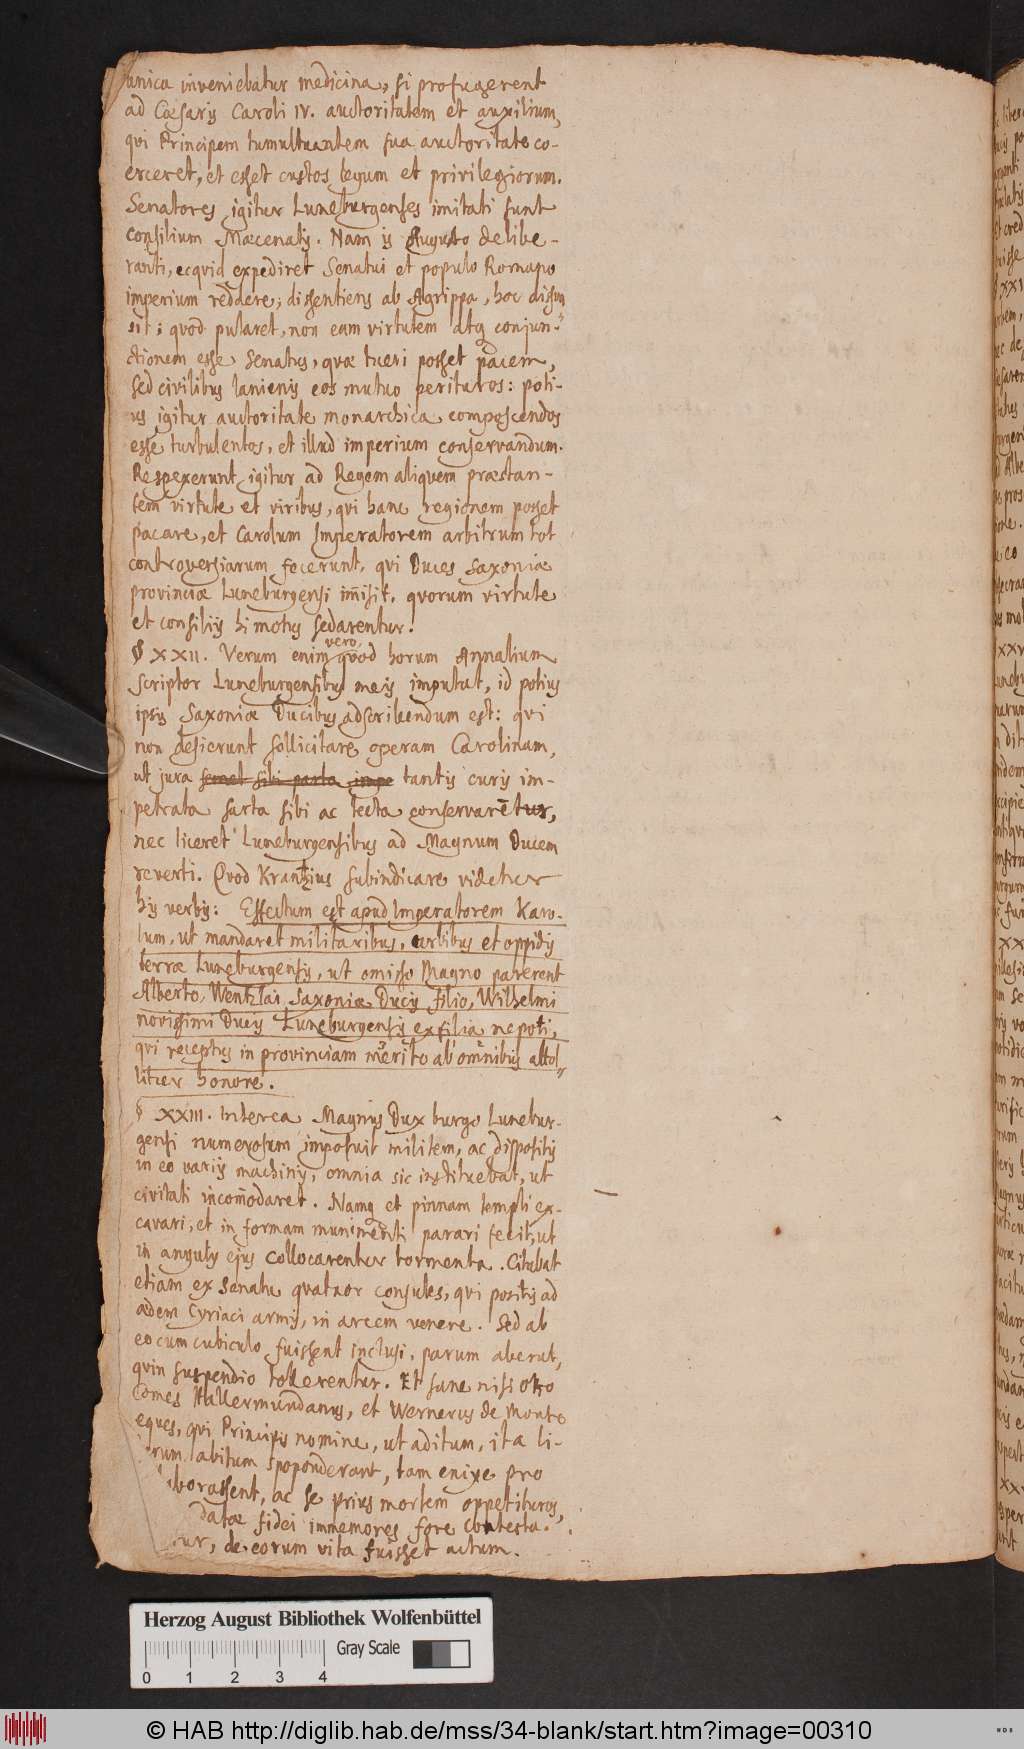 unica inveniebatur medicina, si profugerent
ad Cæsaris Caroli IV. auctoritatem et auxilium,
qvi Principem tumultuantem sua auctoritate co-
erceret, et esset custos legum et privilegiorum.
Senatores igitur Luneburgenses imitati sunt
consilium Mæcenatis. Nam is Augusto delibe-
ranti, ecqvid expediret Senatui et populo Romano
imperium reddere; dissentiens ab Agrippa, hoc dissua
sit; qvod putaret, non eam virtutem atq conjun-
ctionem esse Senatus, qvæ tueri posset pacem,
sed civilibus lanienis eos mutuo perituros: poti-
us igitur auctoritate monarchica compescendos
esse turbulentos, et illud imperium conservandum.
Respexerunt igitur ad Regem aliqvem præstan-
tem virtute et viribus, qvi hanc regionem posset
pacare, et Carolum Imperatorem arbitrum tot
controversiarum fecerunt, qvi Duces Saxoniæ
provinciæ Luneburgensi im̄isit, qvorum virtute
et consiliis hi motus sedarentur.
§ XXII. Verum enim vero, qvod horum Annalium
scriptor Luneburgensibus meis imputat, id potius
ipsis Saxoniæ Ducibus adscribendum est: qvi
non desierunt sollicitare operam Carolinam,
ut jura semel sibi parta impe tantis curis im-
petrata sarta sibi ac tecta conservarētur,
nec liceret Luneburgensibus ad Magnum Ducem
reverti. Qvod Krantzius subindicare videtur
his verbis: Effectum est apud Imperatorem Karo-
lum, ut mandaret militaribus, urbibus et oppidis
terræ Luneburgensis, ut omisso Magno parerent
Alberto, Wentzlai Saxoniæ Ducis filio, Wilhelmi
novissimi Ducis Luneburgensis ex filia nepoti,
qvi receptus in provinciam merito ab omnibus attol-
litur honore.
§ XXIII. Interea Magnus Dux burgo Lunebur-
gensi numerosum imposuit militem, ac dispositis
in eo variis machinis, omnia sic instituebat, ut
civitati incom̄odaret. Namq et pinnam templi ex-
cavari, et in formam munimenti parari fecit, ut
in angulis ejus collocarentur tormenta. Citabat
etiam ex Senatu qvatuor consules, qvi positis ad
ædem Cyriaci armis, in arcem venere. Sed ab
eo cum cubiculo fuissent inclusi, parum aberat,
qvin suspendio tollerentur. Et sane nisi Otto
Comes Hallermundanus, et Wernerus de Monte
eques, qvi Principis nomine, ut aditum, ita li-
rum abitum spoponderant, tam enixe pro
borassent, ac se prius mortem oppetituros,
datæ fidei immemores fore contesta.
tur, de eorum vita fuisset actum.
Herzog August Bibliothek Wolfenbüttel
Gray Scale
0 1 2 3 4
© HAB http://diglib.hab.de/mss/34-blank/start.htm?image=00310